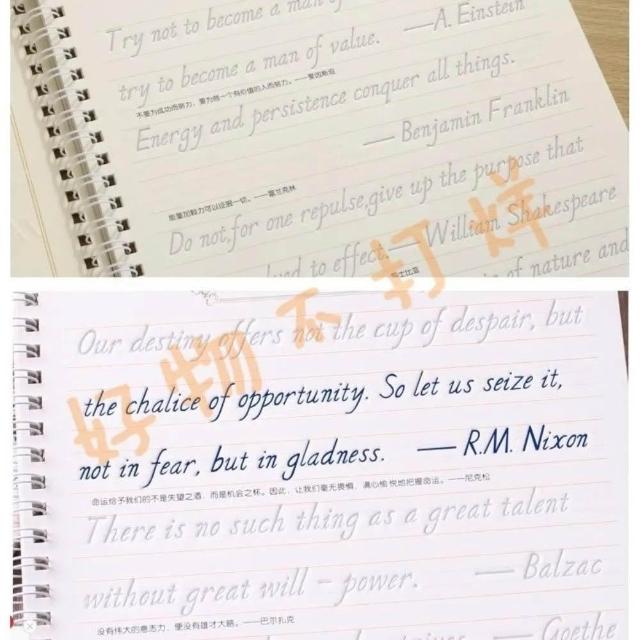 Try not to become a man of
try to become a man of value. —A. Einstein
不要为成功而努力，要为做一个有价值的人而努力。——爱因斯坦
Energy and persistence conquer all things.
— Benjamin Franklin
能量加毅力可以征服一切。——富兰克林
Do not,for one repulse,give up the purpose that
to effect.—William Shakespeare
士比亚
of nature and
好物不打烊
Our destiny offers not the cup of despair, but
the chalice of opportunity. So let us seize it,
not in fear, but in gladness. — R.M. Nixon
命运给予我们的不是失望之酒，而是机会之杯。因此，让我们毫无畏惧，满心愉悦地把握命运。——尼克松
There is no such thing as a great talent
without great will - power. — Balzac
没有伟大的意志力，便没有雄才大略。——巴尔扎克
— Goethe